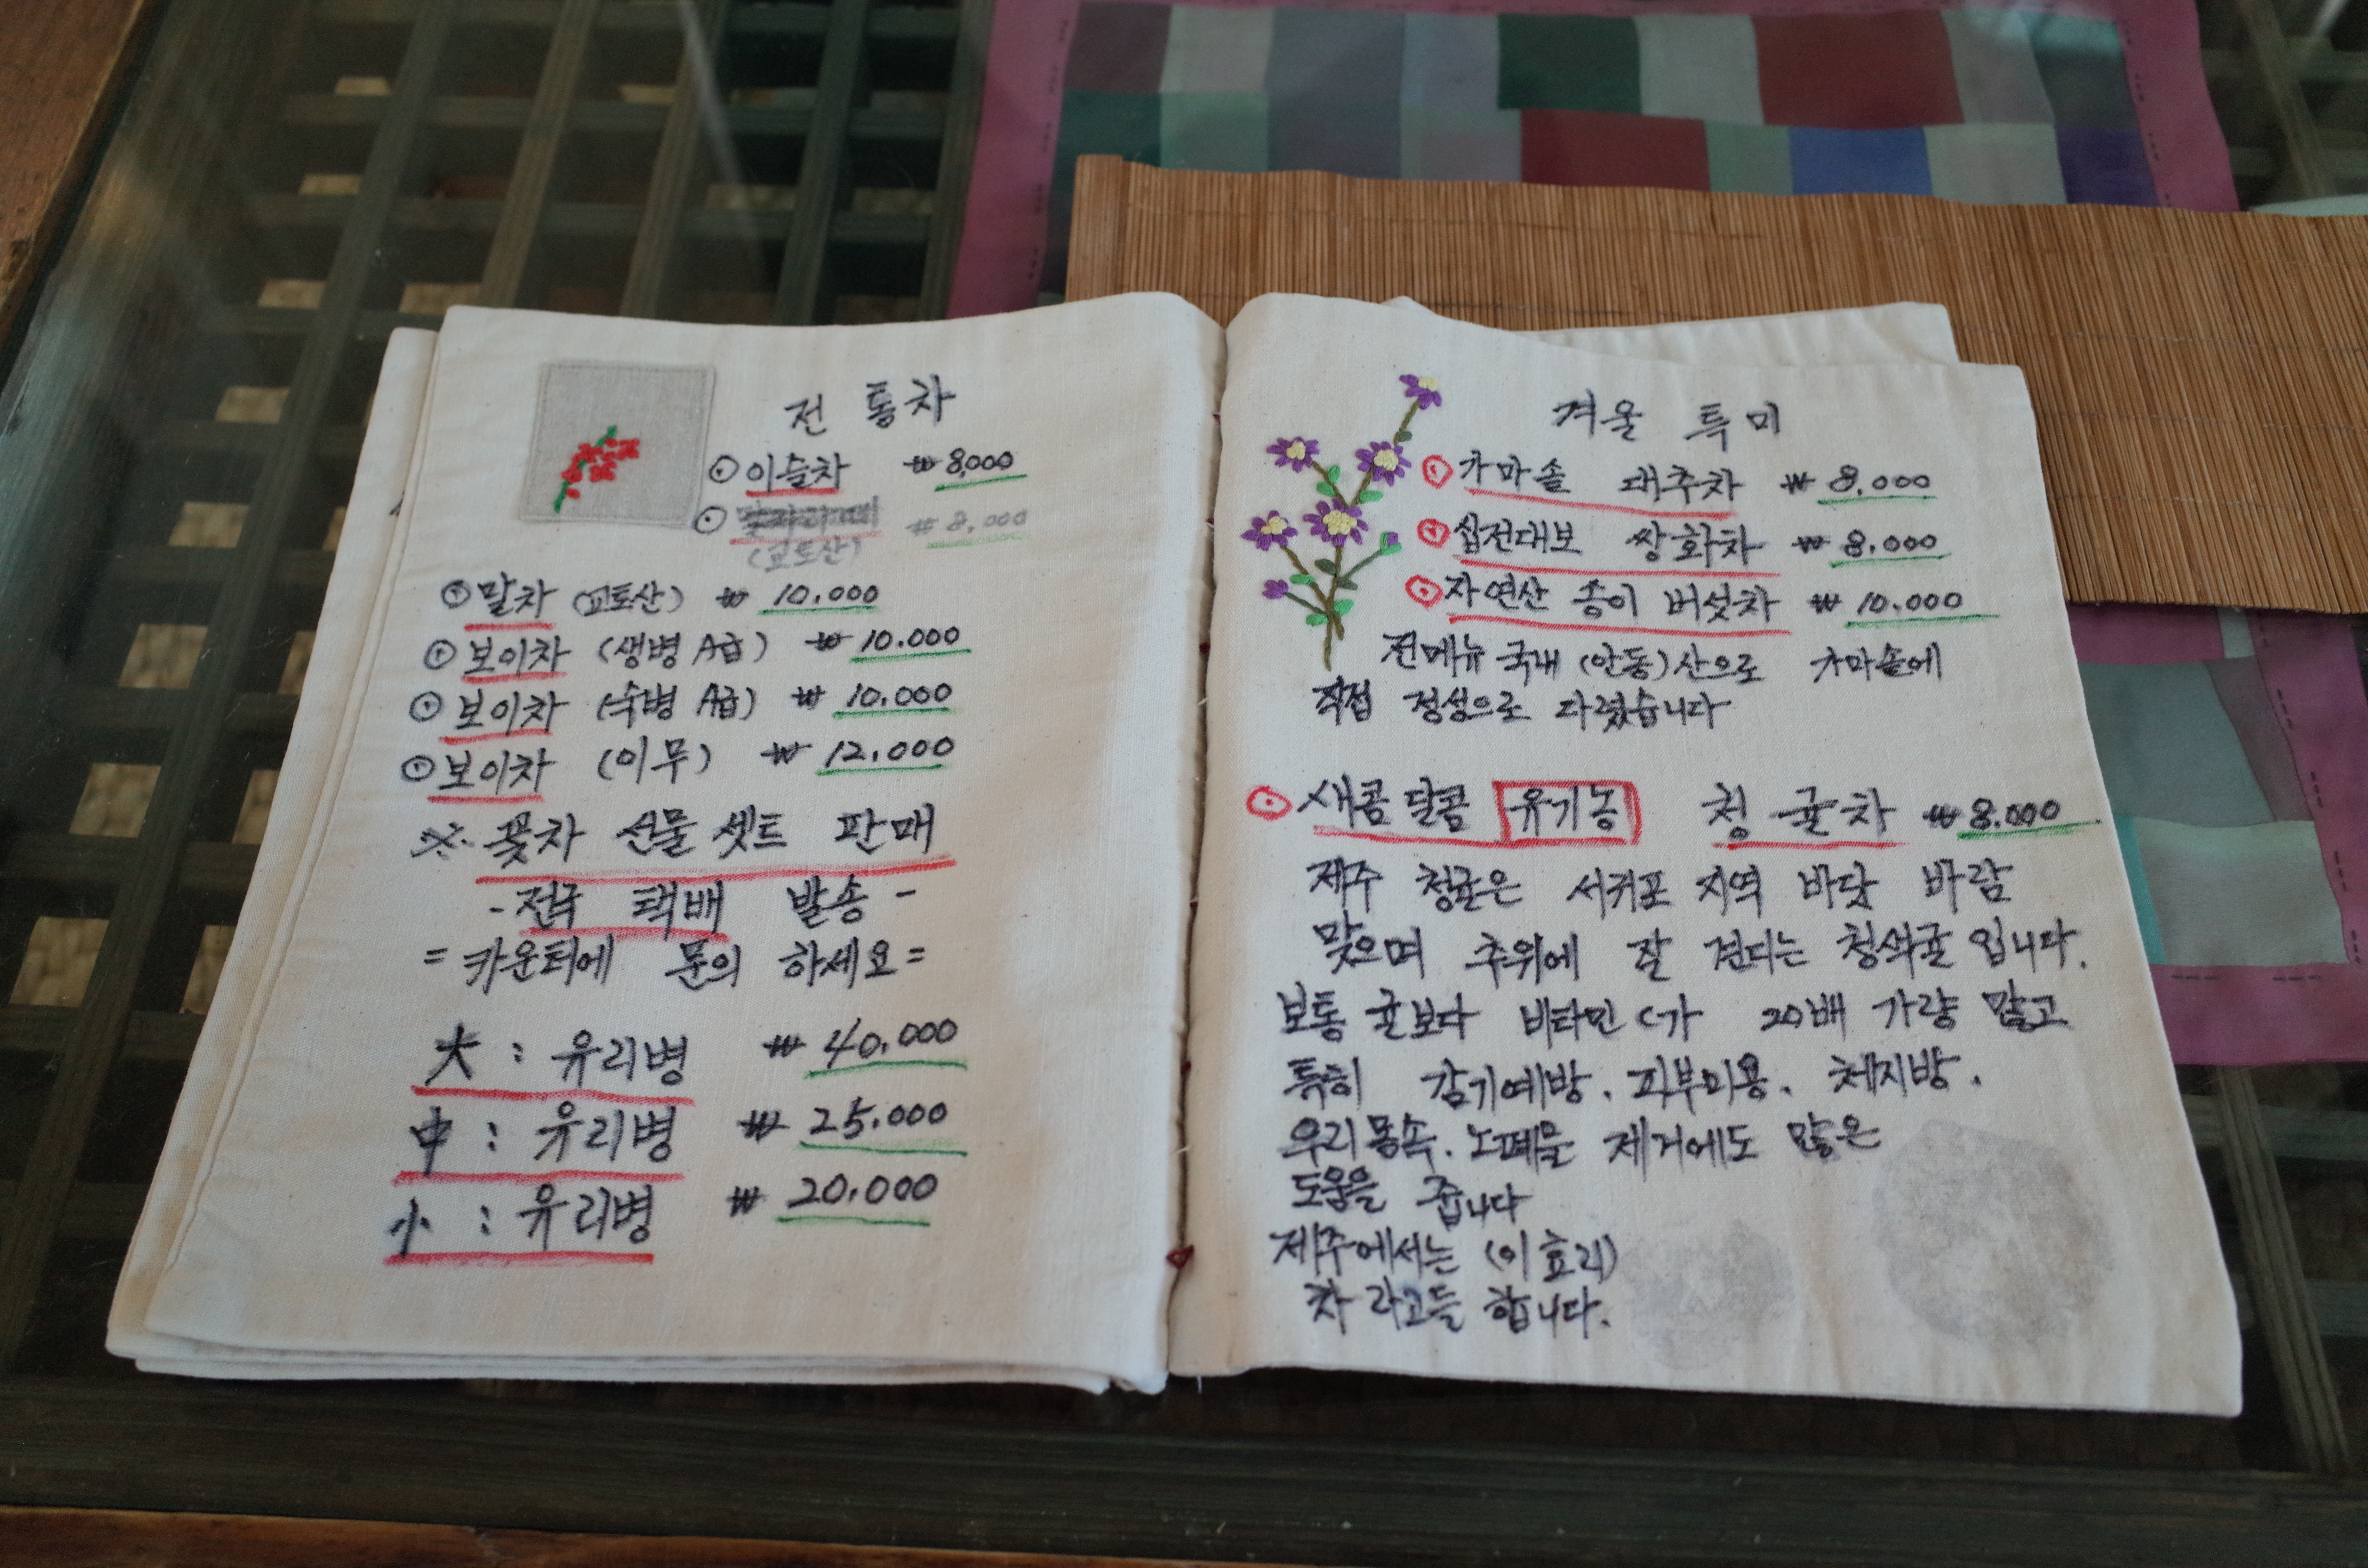 전통차
⊙ 이슬차 ₩ 8,000
⊙ ₩ 8,000
(교토산)
⊙ 말차 (교토산) ₩ 10.000
⊙ 보이차 (생병 A급) ₩ 10.000
⊙ 보이차 (숙병 A급) ₩ 10.000
⊙ 보이차 (이무) ₩ 12.000
※ 꽃차 선물셋트 판매
- 전국 택배 발송 -
= 카운터에 문의 하세요 =
大 : 유리병 ₩ 40.000
中 : 유리병 ₩ 25.000
小 : 유리병 ₩ 20.000
겨울 특미
⊙ 가마솥 대추차 ₩ 8.000
⊙ 십전대보 쌍화차 ₩ 8.000
⊙ 자연산 송이 버섯차 ₩ 10.000
전메뉴 국내 (안동)산으로 가마솥에
직접 정성으로 다렸습니다
⊙ 새콤달콤 유기농 청귤차 ₩ 8.000
제주 청귤은 서귀포 지역 바닷 바람
맞으며 추위에 잘 견디는 청색귤 입니다.
보통 귤보다 비타민 C가 20배 가량 많고
특히 감기예방. 피부미용. 체지방.
우리 몸속. 노폐물 제거에도 많은
도움을 줍니다
제주에서는 (이효리)
차 라고들 합니다.